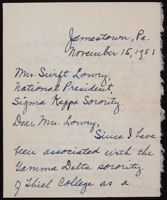 Jamestown, Pa.
November 15, 1951
Mrs. Swift Lowry,
National President,
Sigma Kappa Sorority.
Dear Mrs. Lowry,
Since I have
been associated with the
Gamma Delta sorority
of Thiel College as a